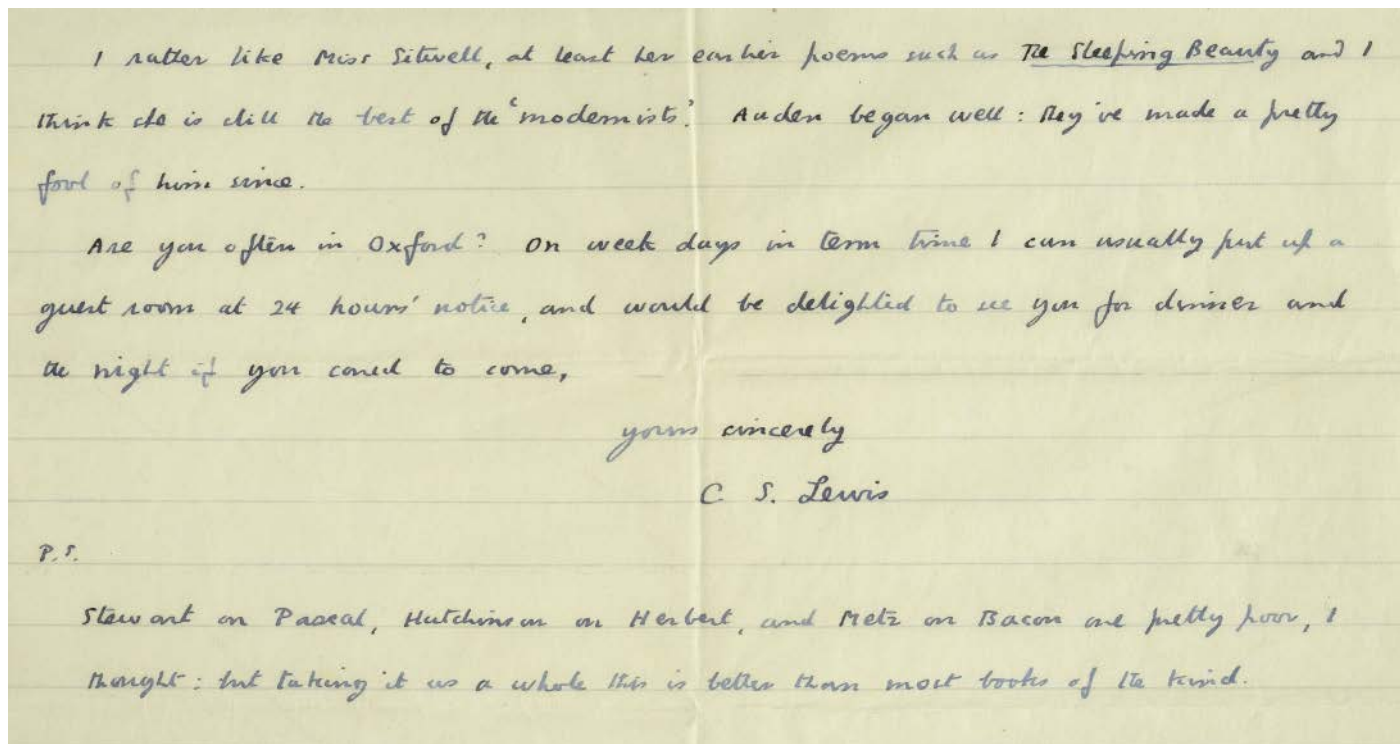 I rather like Miss Sitwell, at least her earlier poems such as The Sleeping Beauty and I
think she is still the best of the 'modernists'. Auden began well: they've made a pretty
fool of him since.
Are you often in Oxford? On week days in term time I can usually put up a
guest room at 24 hours' notice, and would be delighted to see you for dinner and
the night if you cared to come,
yours sincerely
C. S. Lewis
P.S.
Stewart on Pascal, Hutchinson on Herbert, and Metz on Bacon are pretty poor, I
thought: but taking it as a whole this is better than most books of the kind.